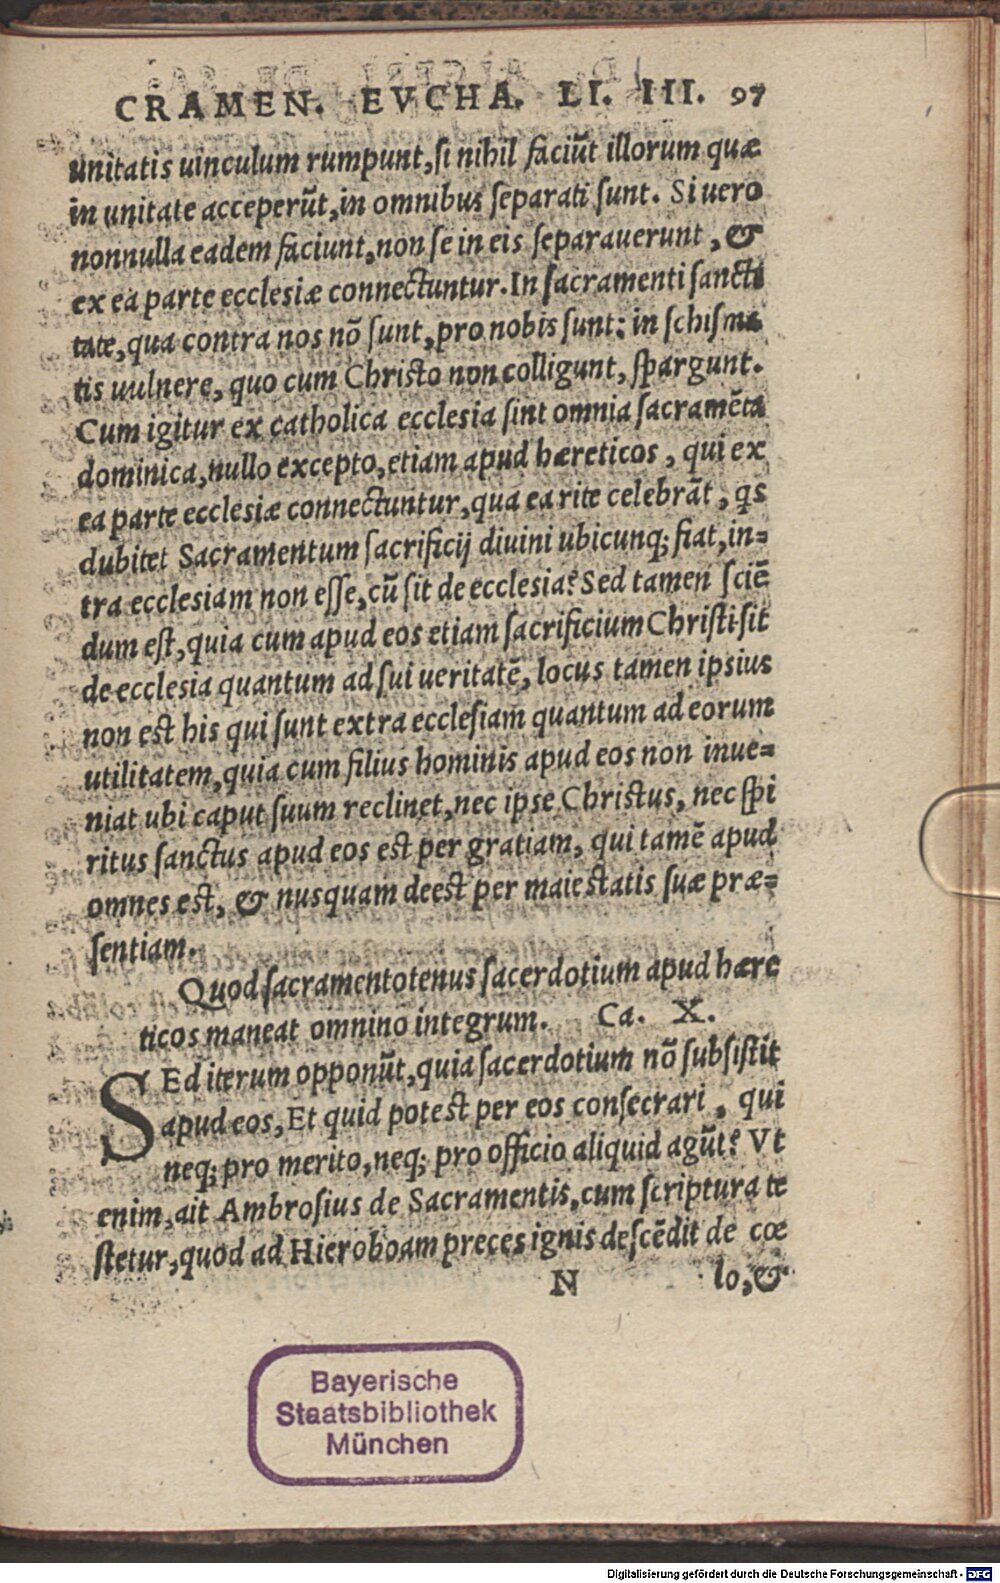 CRAMEN. EVCHA. LI. III. 97
unitatis uinculum rumpunt, si nihil faciũt illorum quæ
in unitate acceperũt, in omnibus separati sunt. Si uero
nonnulla eadem faciunt, non se in eis separauerunt, &
ex ea parte ecclesiæ connectuntur. In sacramenti sancti
tate, qua contra nos nõ sunt, pro nobis sunt: in schisma
tis uulnere, quo cum Christo non colligunt, spargunt.
Cum igitur ex catholica ecclesia sint omnia sacramẽta
dominica, nullo excepto, etiam apud hæreticos, qui ex
ea parte ecclesiæ connectuntur, qua ea rite celebrãt, q̃s
dubitet Sacramentum sacrificij diuini ubicunq; fiat, in=
tra ecclesiam non esse, cũ sit de ecclesia? Sed tamen sciẽ
dum est, quia cum apud eos etiam sacrificium Christi sit
de ecclesia quantum ad sui ueritatẽ, locus tamen ipsius
non est his qui sunt extra ecclesiam quantum ad eorum
utilitatem, quia cum filius hominis apud eos non inue=
niat ubi caput suum reclinet, nec ipse Christus, nec spi
ritus sanctus apud eos est per gratiam, qui tamẽ apud
omnes est, & nusquam deest per maiestatis suæ præ=
sentiam.
Quod sacramentotenus sacerdotium apud hære
ticos maneat omnino integrum. Ca. X.
SEd iterum opponũt, quia sacerdotium nõ subsistit
apud eos, Et quid potest per eos consecrari, qui
neq; pro merito, neq; pro officio aliquid agũt? Vt
enim, ait Ambrosius de Sacramentis, cum scriptura te
stetur, quod ad Hieroboam preces ignis descẽdit de cœ
N lo, &
Bayerische
Staatsbibliothek
München
Digitalisierung gefördert durch die Deutsche Forschungsgemeinschaft - DFG